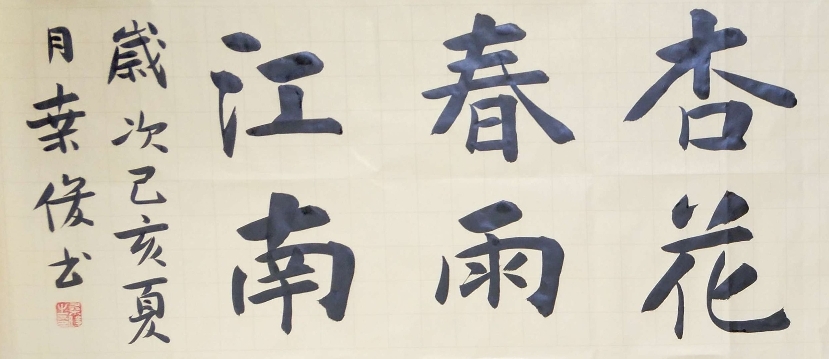 杏花
春雨
江南
歲次己亥夏
月桒俊书